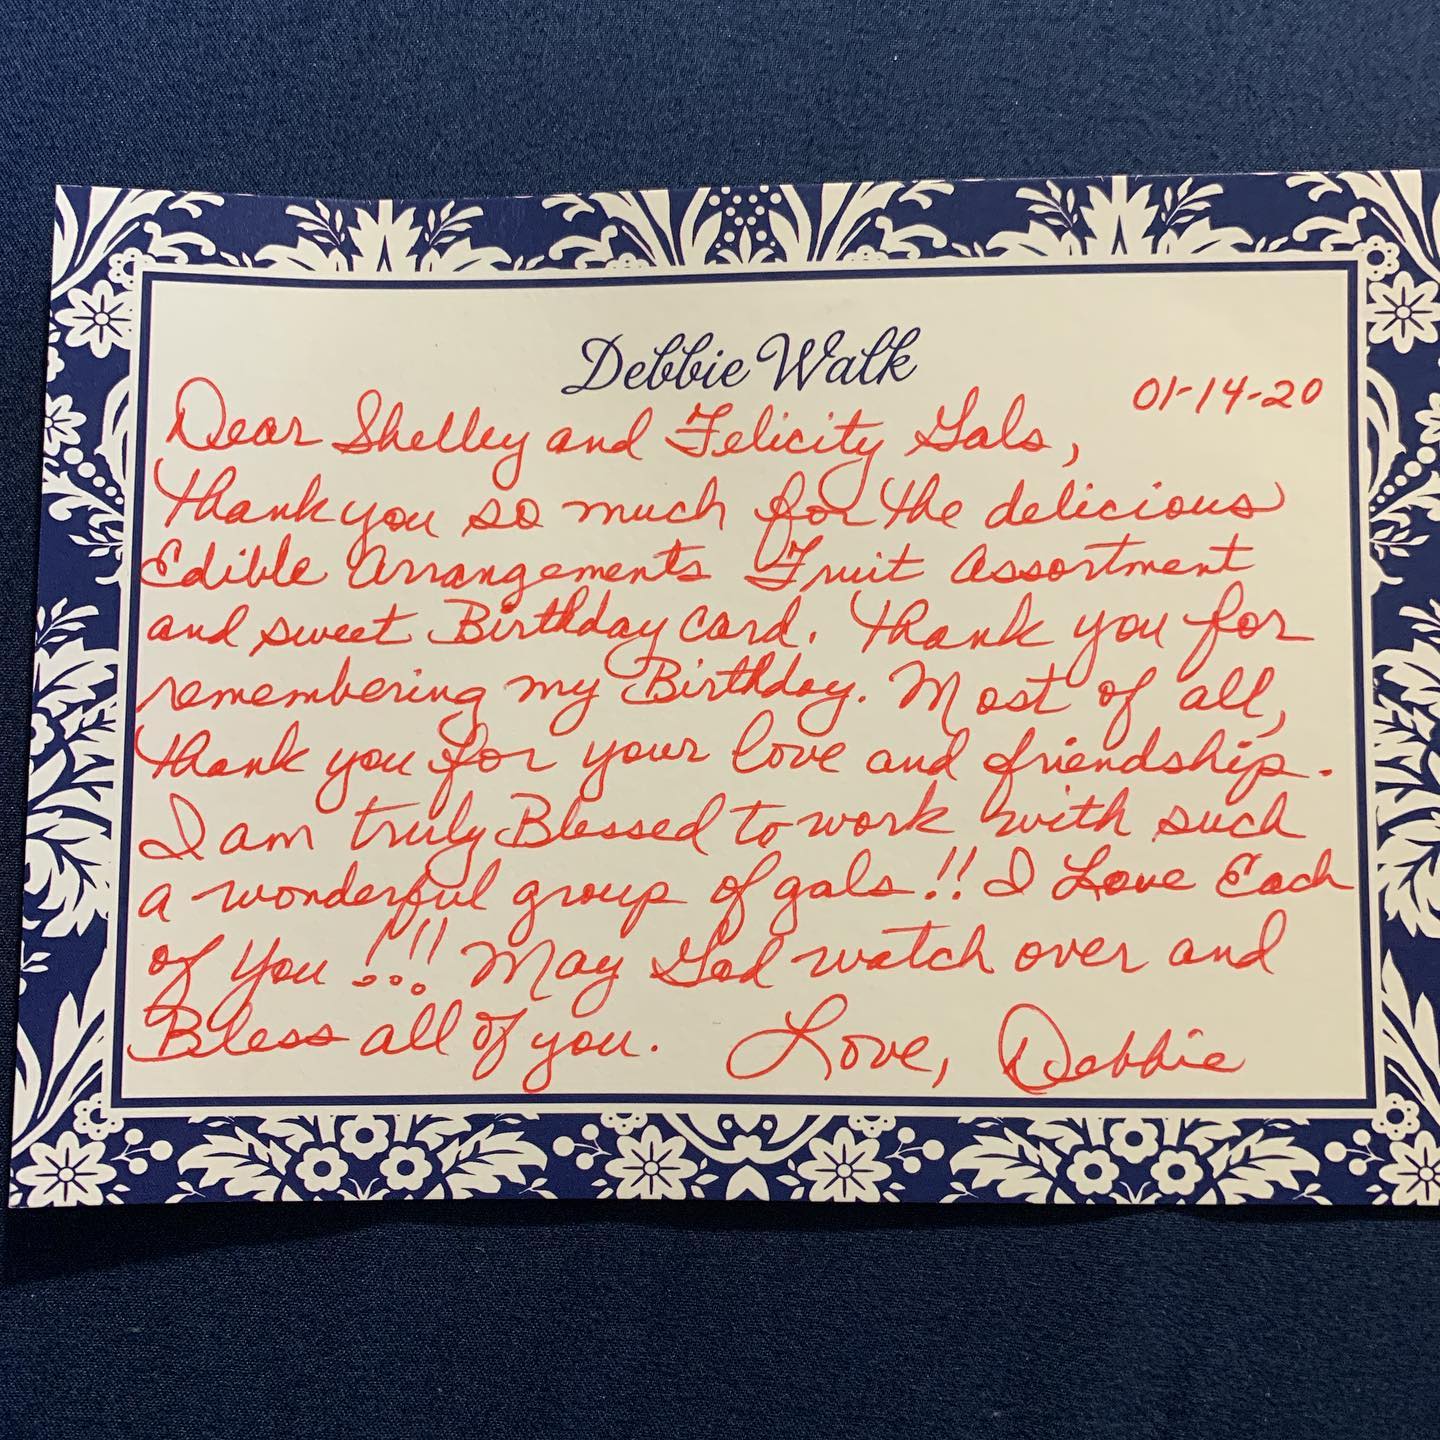 Debbie Walk
01-14-20
Dear Shelley and Felicity Gals,
Thank you so much for the delicious
Edible Arrangements Fruit Assortment
and sweet Birthday card. Thank you for
remembering my Birthday. Most of all,
thank you for your love and friendship.
I am truly Blessed to work with such
a wonderful group of gals!! I Love Each
of You!!!! May God watch over and
Bless all of you. Love, Debbie